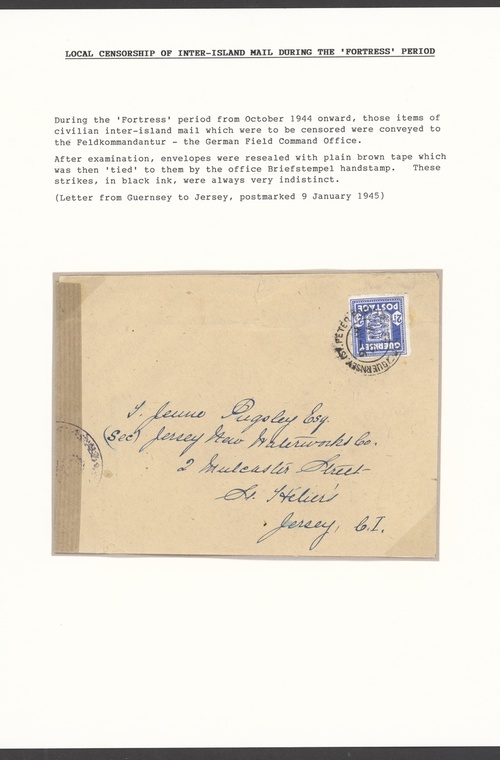 LOCAL CENSORSHIP OF INTER-ISLAND MAIL DURING THE 'FORTRESS' PERIOD
During the 'Fortress' period from October 1944 onward, those items of
civilian inter-island mail which were to be censored were conveyed to
the Feldkommandantur - the German Field Command Office.
After examination, envelopes were resealed with plain brown tape which
was then 'tied' to them by the office Briefstempel handstamp. These
strikes, in black ink, were always very indistinct.
(Letter from Guernsey to Jersey, postmarked 9 January 1945)
POSTAGE
GUERNSEY
GUERNSEY (ST. PETER
Jenne Pugsley Esq.
(Sec) Jersey New Waterworks Co.
2 Mulcaster Street
St. Helier's
Jersey, C.I.